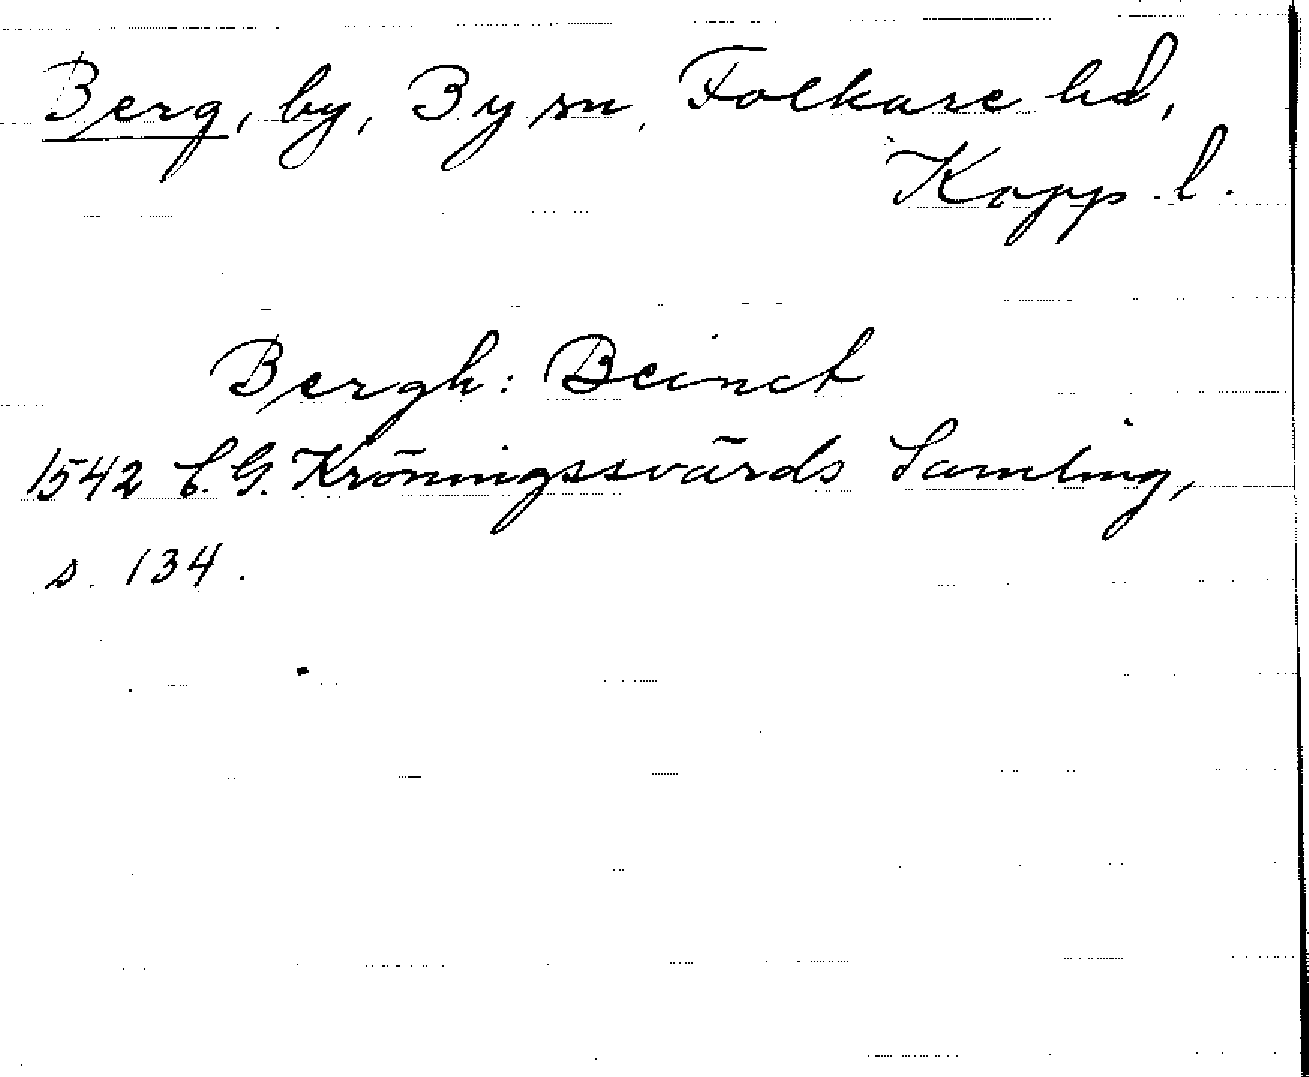 Berg, by, By sn, Folkare hd,
Kopp. l.
Bergh: Beinct
1542 C.G. Kröningssvärds Samling,
s. 134.